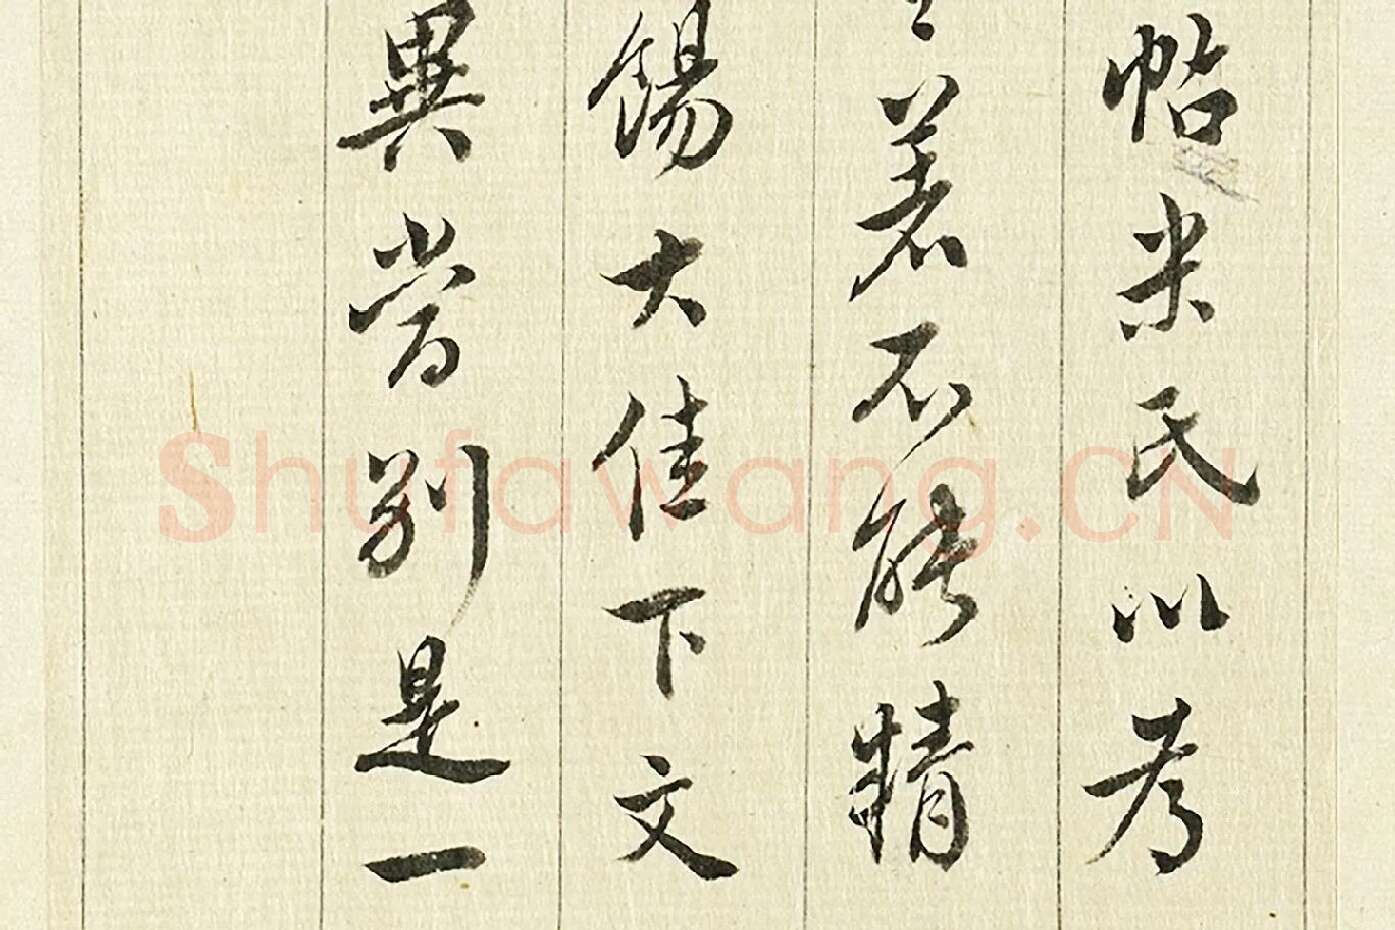 帖米氏以考
著不能精
錫大佳下文
異當別是一
Shufawang.CN